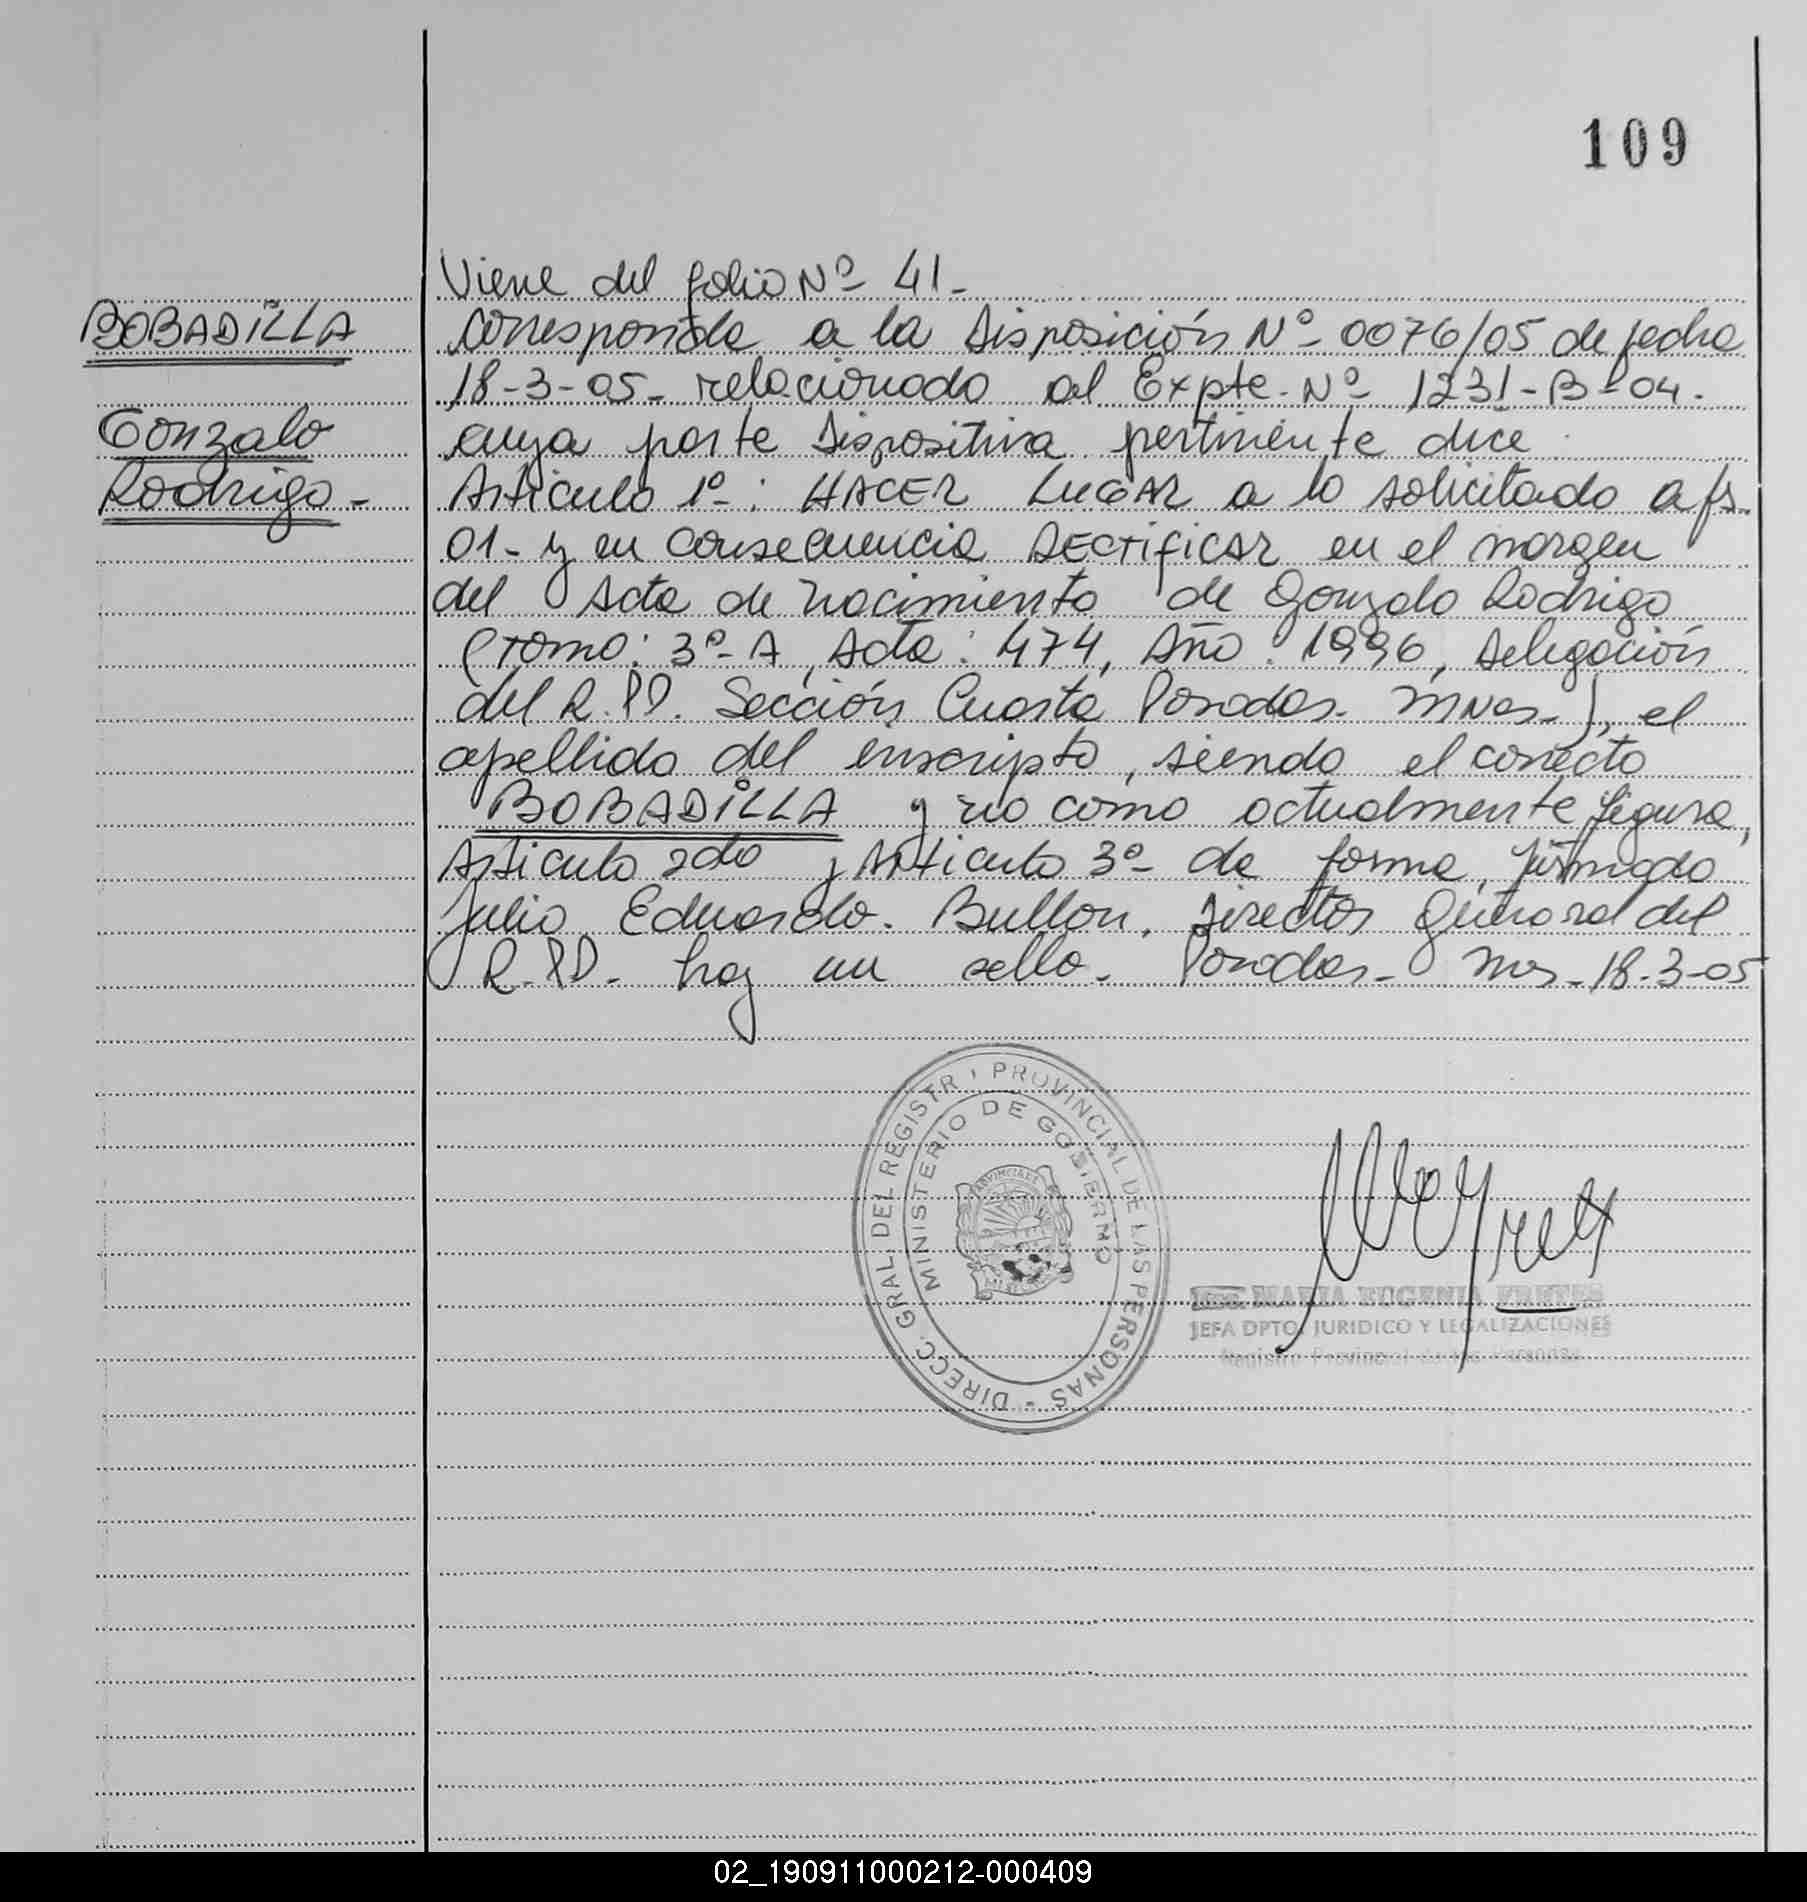 109
Viene del folio Nº 41-
BOBADILLA
corresponde a la Disposición Nº- 0076/05 de fecha
18-3-05- relacionado al Expte. Nº- 1231-B-04.
Gonzalo
cuya parte dispositiva pertinente dice:
Rodrigo-
Articulo 1º-: HACER LUGAR a lo solicitado a fs.
01- y en consecuencia RECTIFICAR en el margen
del Acta de nacimiento de Gonzalo Rodrigo
(Tomo: 3º-A, Acta: 474, Año: 1996, Delegación
del R.PP. Sección Cuarta Posadas- Mnes-), el
apellido del inscripto, siendo el correcto
BOBADILLA y no como actualmente figura,
Articulo 2do y Articulo 3º- de forma, firmado
Julio Eduardo. Bullon. Director General del
R.PP- hay un sello. Posadas- Mnes- 18-3-05
DIRECC. GRAL. DEL REGISTR PROVINCIAL DE LAS PERSONAS -
MINISTERIO DE GOBIERNO
MARIA EUGENIA FRETES
JEFA DPTO. JURIDICO Y LEGALIZACIONES
Registro Provincial de las Personas
02_190911000212-000409